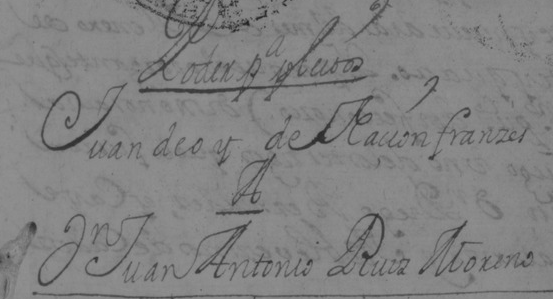 Poder pª pleitos
Juan de o y de Nacion franzes
A
Dn Juan Antonio Ruiz Moreno